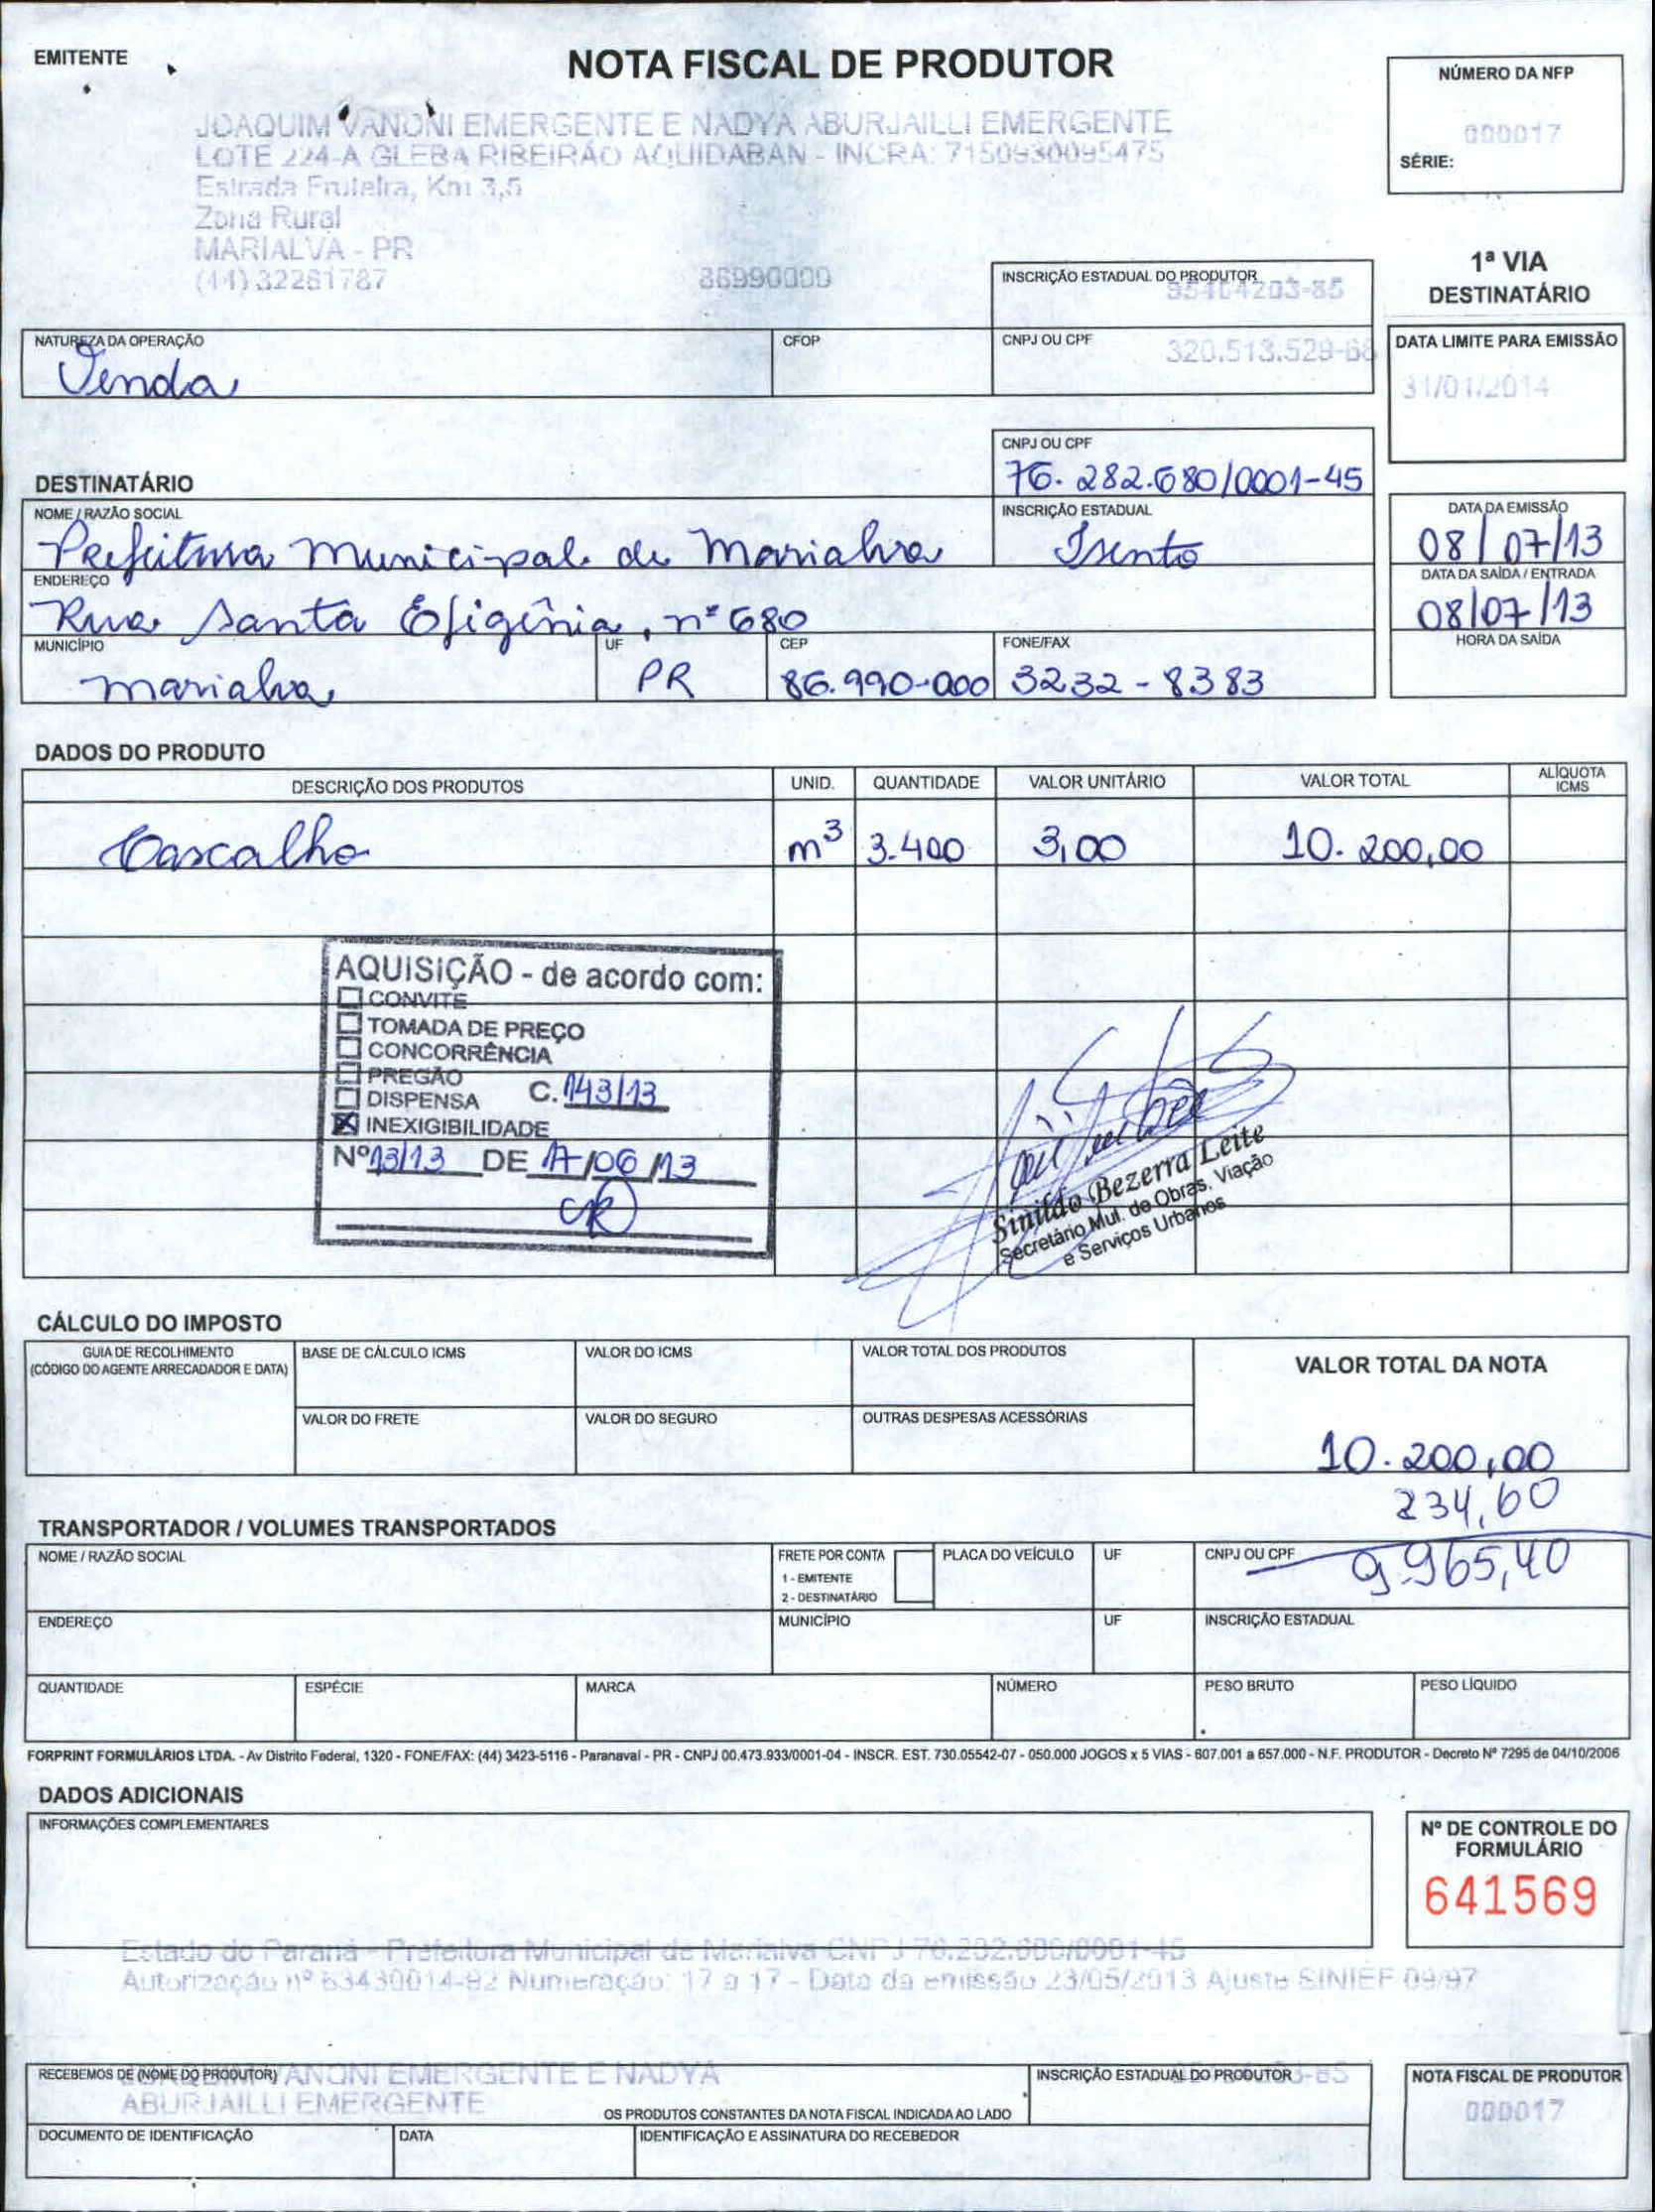 EMITENTE
NOTA FISCAL DE PRODUTOR
NÚMERO DA NFP
000017
SÉRIE:
JOAQUIM VANONI EMERGENTE E NADYA ABURJAILLI EMERGENTE
LOTE 224-A GLEBA RIBEIRÃO AQUIDABAN - INCRA: 7150930095475
Estrada Fruteira, Km 3,5
Zona Rural
MARIALVA - PR
(44) 32261787 86990000
INSCRIÇÃO ESTADUAL DO PRODUTOR
1ª VIA
DESTINATÁRIO
NATUREZA DA OPERAÇÃO
Venda
CFOP
CNPJ OU CPF
320.513.529-68
DATA LIMITE PARA EMISSÃO
31/01/2014
DESTINATÁRIO
CNPJ OU CPF
76.282.680/0001-45
NOME / RAZÃO SOCIAL
Prefeitura Municipal de Marialva
INSCRIÇÃO ESTADUAL
Isento
DATA DA EMISSÃO
08/07/13
ENDEREÇO
Rua Santa Efigênia, nº 680
DATA DA SAÍDA / ENTRADA
08/07/13
MUNICÍPIO
Marialva
UF
PR
CEP
86.990-000
FONE/FAX
3232-8383
HORA DA SAÍDA
DADOS DO PRODUTO
DESCRIÇÃO DOS PRODUTOS UNID. QUANTIDADE VALOR UNITÁRIO VALOR TOTAL ALÍQUOTA ICMS
Cascalho m³ 3.400 3,00 10.200,00
AQUISIÇÃO - de acordo com:
CONVITE
TOMADA DE PREÇO
CONCORRÊNCIA
PREGÃO
DISPENSA C. 143/13
INEXIGIBILIDADE
Nº 13/13 DE 17/06/13
Sinildo Bezerra Leite
Secretário Mul. de Obras, Viação
e Serviços Urbanos
CÁLCULO DO IMPOSTO
GUIA DE RECOLHIMENTO
(CÓDIGO DO AGENTE ARRECADADOR E DATA)
BASE DE CÁLCULO ICMS
VALOR DO ICMS
VALOR TOTAL DOS PRODUTOS
VALOR TOTAL DA NOTA
VALOR DO FRETE
VALOR DO SEGURO
OUTRAS DESPESAS ACESSÓRIAS
10.200,00
234,60
9.965,40
TRANSPORTADOR / VOLUMES TRANSPORTADOS
NOME / RAZÃO SOCIAL
FRETE POR CONTA
1 - EMITENTE
2 - DESTINATÁRIO
PLACA DO VEÍCULO
UF
CNPJ OU CPF
ENDEREÇO
MUNICÍPIO
UF
INSCRIÇÃO ESTADUAL
QUANTIDADE
ESPÉCIE
MARCA
NÚMERO
PESO BRUTO
PESO LÍQUIDO
FORPRINT FORMULÁRIOS LTDA. - Av Distrito Federal, 1320 - FONE/FAX: (44) 3423-5116 - Paranavaí - PR - CNPJ 00.473.933/0001-04 - INSCR. EST. 730.05542-07 - 050.000 JOGOS x 5 VIAS - 607.001 a 657.000 - N.F. PRODUTOR - Decreto Nº 7295 de 04/10/2006
DADOS ADICIONAIS
INFORMAÇÕES COMPLEMENTARES
Nº DE CONTROLE DO
FORMULÁRIO
641569
Estado do Paraná - Prefeitura Municipal de Marialva CNPJ 76.282.680/0001-45
Autorização nº 63430014-92 Numeração: 17 a 17 - Data da emissão 23/05/2013 Ajuste SINIEF 09/97
RECEBEMOS DE (NOME DO PRODUTOR)
JOAQUIM VANONI EMERGENTE E NADYA
ABURJAILLI EMERGENTE
OS PRODUTOS CONSTANTES DA NOTA FISCAL INDICADA AO LADO
INSCRIÇÃO ESTADUAL DO PRODUTOR
NOTA FISCAL DE PRODUTOR
000017
DOCUMENTO DE IDENTIFICAÇÃO
DATA
IDENTIFICAÇÃO E ASSINATURA DO RECEBEDOR